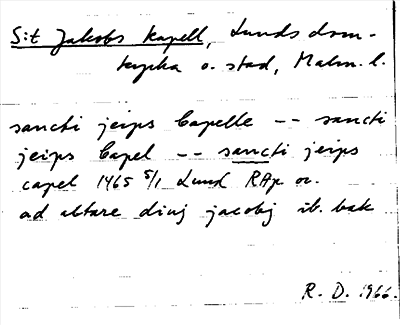 S:t Jakobs kapell, Lunds dom-
kyrka o. stad, Malm. l.
sancti jeips Capelle -- sancti
jeips Capel -- sancti jeips
capel 1465 5/1 Lund RAp or.
ad altare diuj jacobj ib. bak
R. D. 1966.